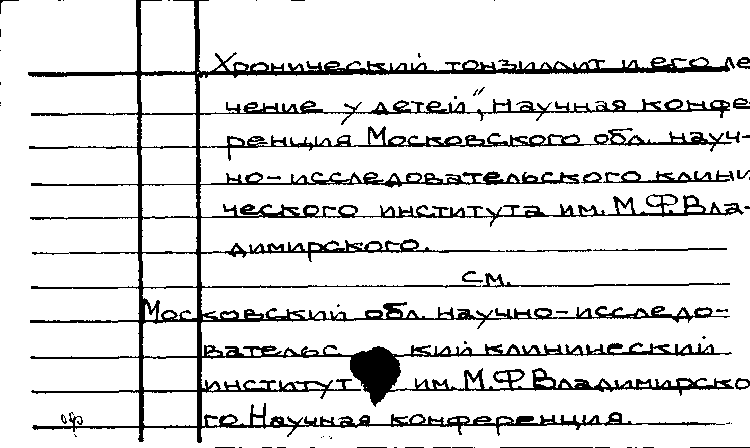 Хронический тонзиллит и его ле
чение у детей", Научная конфе
ренция Московского обл. науч-
но-исследовательского клини
ческого института им. М.Ф.Вла-
димирского.
см.
Московский обл. научно-исследо-
вательский клинический
институт им. М.Ф.Владимирско
го. Научная конференция.